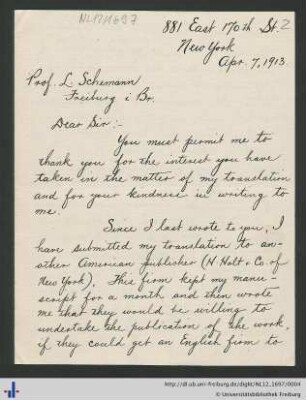 NL12/1697
881 East 170th St. 2
New York
Apr 7, 1913
Prof. L. Schemann
Freiburg i Br.
Dear Sir:-
You must permit me to
thank you for the interest you have
taken in the matter of my translation
and for your kindness in writing to
me.
Since I last wrote to you, I
have submitted my translation to an-
other American publisher (H Holt & Co of
New York). This firm kept my manu-
script for a month and then wrote
me that they would be willing to
undertake the publication of the work,
if they could get an English firm to
http://dl.ub.uni-freiburg.de/diglit/NL12_1697/0004
© Universitätsbibliothek Freiburg